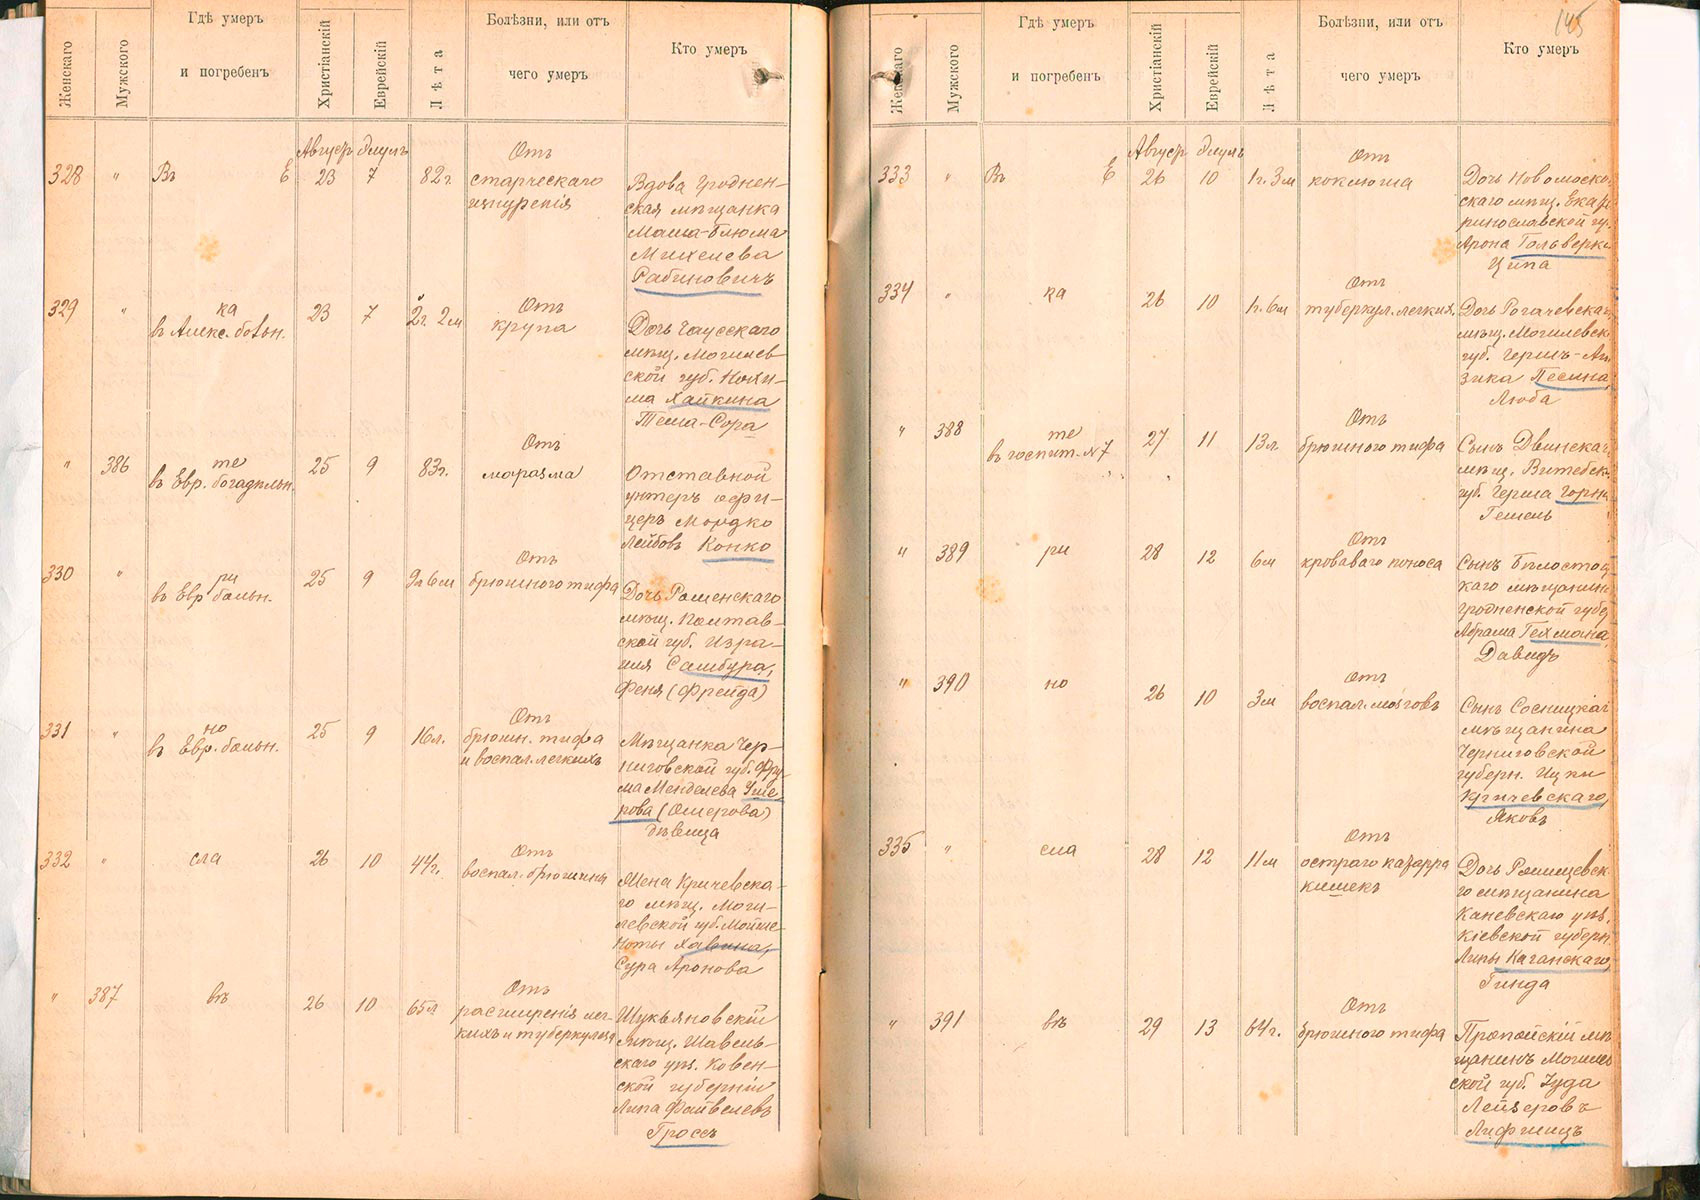 Женскаго
Мужского
Гдѣ умеръ
и погребенъ
Христіанскій
Еврейскій
Лѣта
Болѣзни, или отъ
чего умеръ
Кто умеръ
328 " Въ Е
Август Элулъ
23 7 82г.
Отъ
старческаго
изнуренія
Вдова Гроднен-
ская мѣщанка
Маша-Блюма
Михелева
Рабиновичъ
329 "
ка
въ Алекс. больн.
23 7 2г. 2м
Отъ
крупа
Дочь Чаусскаго
мѣщ. Могилев-
ской губ. Нохи-
ма Хайкина
Теша-Сора
" 386
те
въ Евр. богадѣльн.
25 9 83г.
Отъ
маразма
Отставной
унтеръ офи-
церъ Мордко
Лейбовъ Конко
330 "
ри
въ Евр больн.
25 9 9л 6м
Отъ
брюшного тифа
Дочь Роменскаго
мѣщ. Полтав-
ской губ. Изра-
иля Самбура,
Феня (Фрейда)
331 "
но
въ Евр. больн.
25 9 16л.
Отъ
брюшн. тифа
и воспал. легкихъ
Мѣщанка Чер-
ниговской губ. Фру-
ма Менделева Уше-
рова (Ошерова)
дѣвица
332 " сла
26 10 44г.
Отъ
воспал. брюшины
Жена Кричевска-
го мѣщ. Моги-
левской губ. Мойше-
Ноты Хавина,
Сура Аронова
" 387 въ
26 10 65л
Отъ
расширенія лег-
кихъ и туберкулеза
Шукьяновскій
мѣщ. Шавель-
скаго уѣз. Ковен-
ской губерніи
Липа Файвелевъ
Гроссъ
145
Женскаго
Мужского
Гдѣ умеръ
и погребенъ
Христіанскій
Еврейскій
Лѣта
Болѣзни, или отъ
чего умеръ
Кто умеръ
333 " Въ Е
Август Элулъ
26 10 1г. 3м
Отъ
коклюша
Дочь Новомоско-
скаго мѣщ. Екате
ринославской гу.
Арона Гольверка
Ципа
334 " ка
26 10 1г. 6м
Отъ
туберкул. легких.
Дочь Рогачевскаг
мѣщ. Могилевск
губ. Герша-Ай
зика Песина,
Люба
" 388
те
въ госпит. №7
27 11 13л.
Отъ
брюшного тифа
Сынъ Двинскаг
мѣщ. Витебск
губ. Герша
Гешель
" 389 ри
28 12 6м
Отъ
кроваваго поноса
Сынъ Бѣлостоц
каго мѣщанина
Гродненской губер
Абрама Гехмана,
Давидъ
" 390 но
26 10 3м
Отъ
воспал. мозговъ
Сынъ Сосницкаг
мѣщанина
Черниговской
губерн. Ицки
Кричевскаго,
Яковъ
335 " сла
28 12 11м
Отъ
остраго катарра
кишекъ
Дочь
го мѣщанина
Каневскаго уѣз.
Кіевской губерн.
Липы Каганскаго,
Гинда
" 391 въ
29 13 64г.
Отъ
брюшного тифа
Пропойскій мѣ
щанинъ Могилев
ской губ. Іуда
Лейзеровъ
Лифшицъ